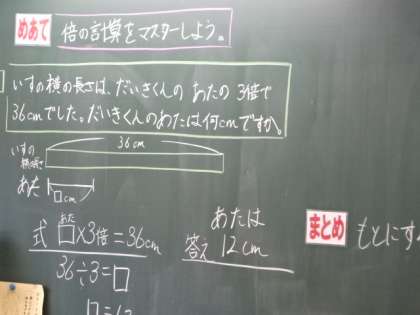 めあて 倍の計算をマスターしよう。
いすの横の長さは、だいきくんの あたの 3倍で
36cmでした。だいきくんのあたは何cmですか。
36cm
いすの
横の長さ
あた
□cm
あた
式 □×3倍=36cm
36÷3=□
あたは
答え 12cm
まとめ もとにす